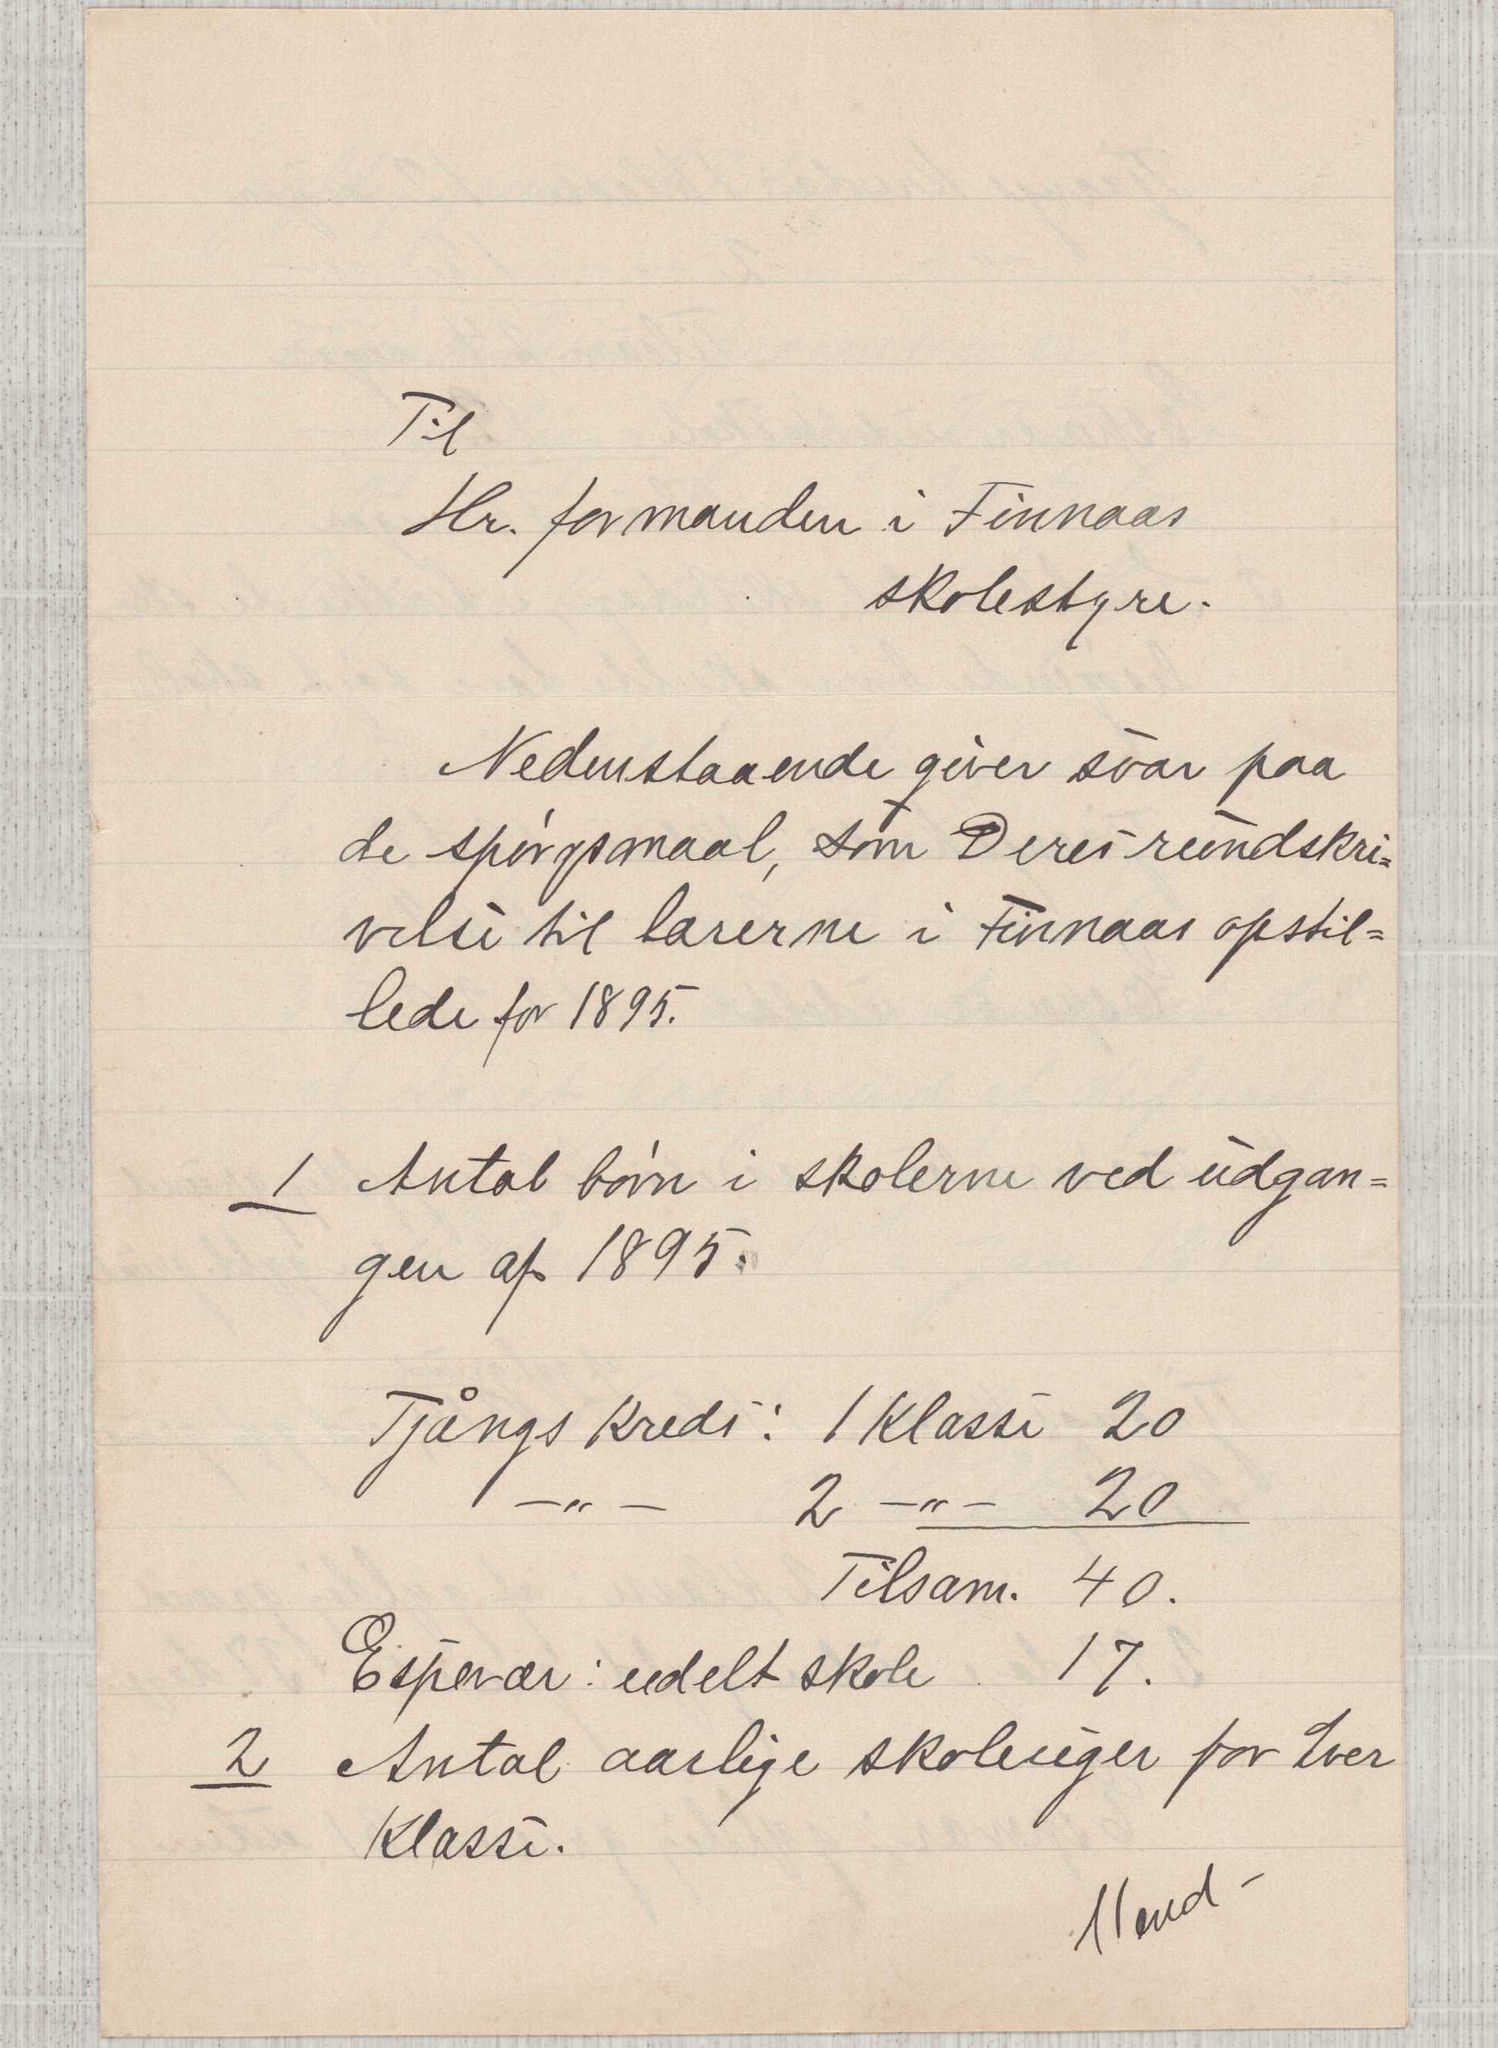 Til
Hr. formanden i Finnaas
skolestyre.
Nedenstaaende giver svar paa
de spørgsmaal, som Deres rundskri=
velse til lærerne i Finnaas opstil=
lede for 1895.
1 Antal børn i skolerne ved udgan=
gen af 1895.
Tjångs kreds: 1 Klasse 20
—"— 2 —"— 20
Tilsam. 40.
Espevær: udelt skole 17.
2 Antal aarlige skoleuger for hver
Klasse.